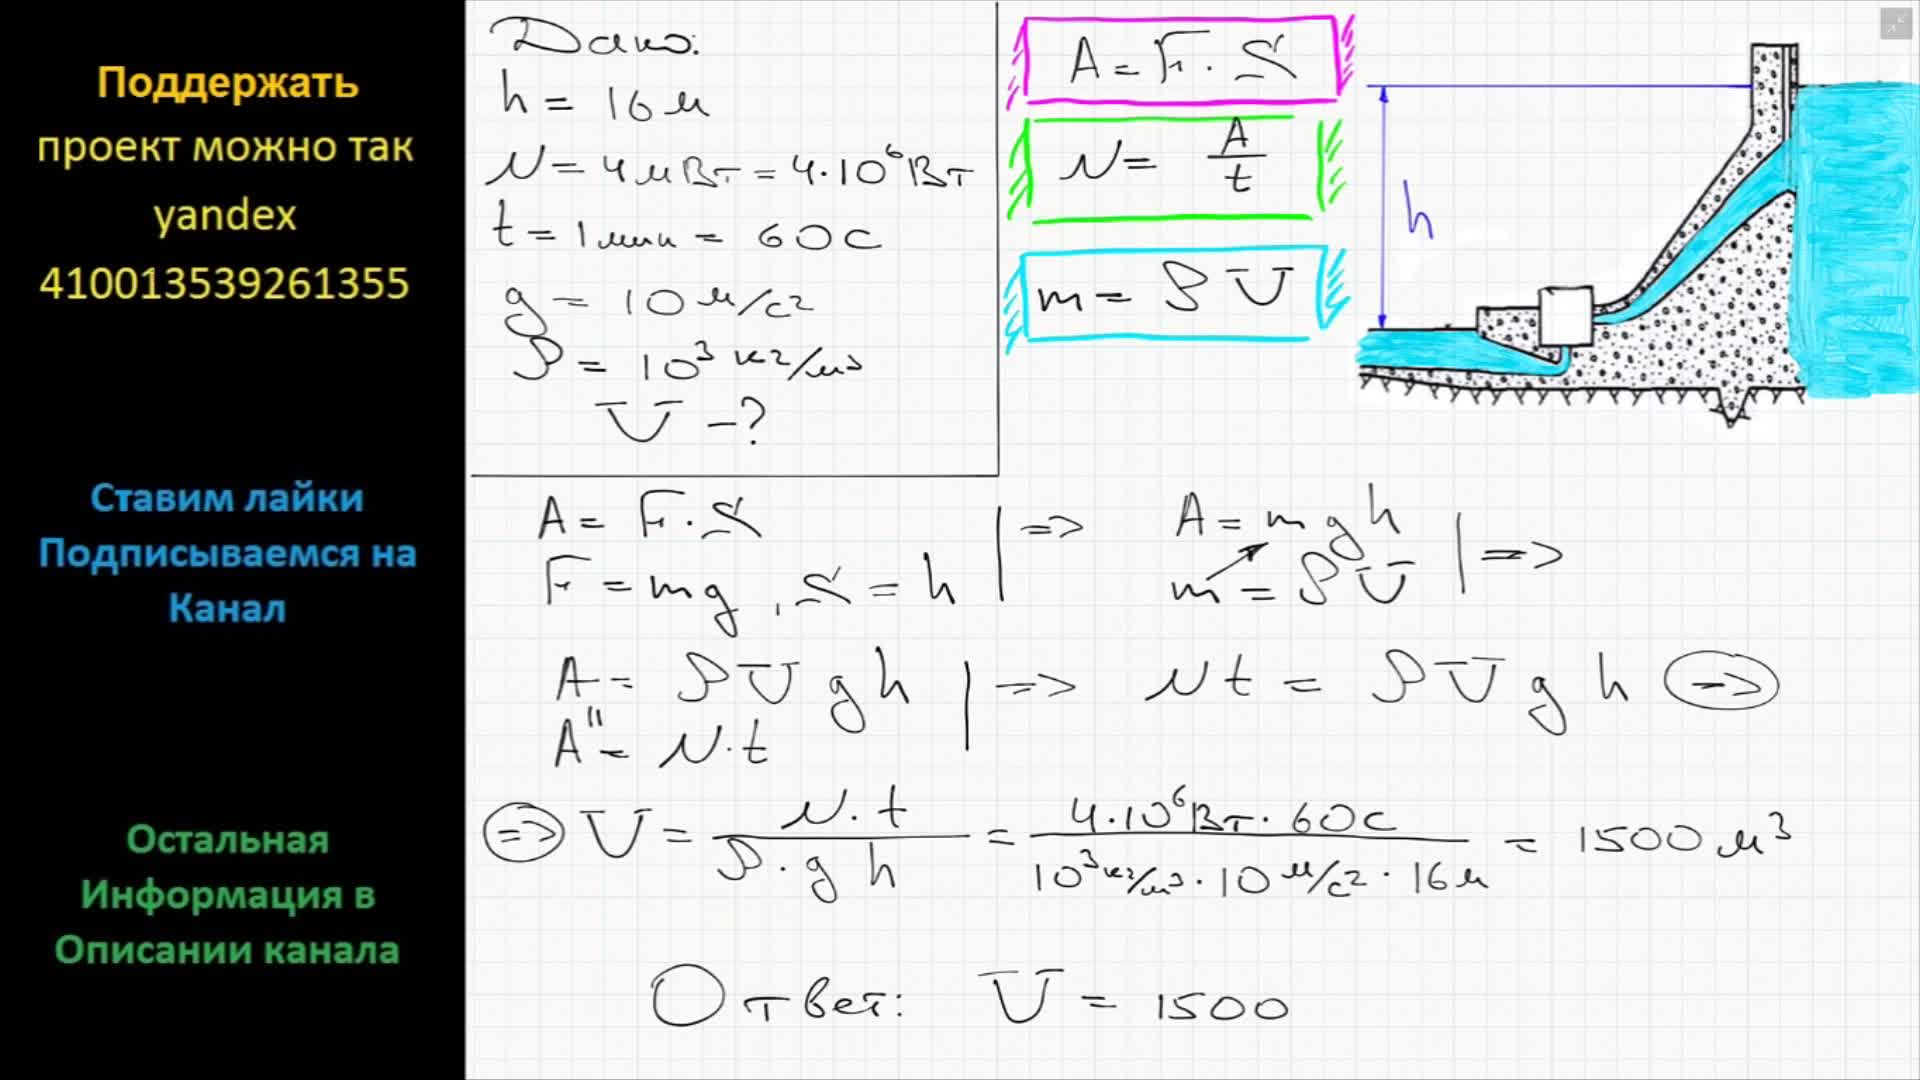 Поддержать
проект можно так
yandex
410013539261355
Ставим лайки
Подписываемся на
Канал
Остальная
Информация в
Описании канала
Дано:
h = 16 м
N = 4 мВт = 4·10⁶ Вт
t = 1 мин = 60 с
g = 10 м/с²
ρ = 10³ кг/м³
V - ?
A = F · S
N = A/t
m = ρ V
h
A = F · S | => A = m g h
F = mg, S = h | m = ρ V | =>
A = ρ V g h | => N t = ρ V g h =>
A = N · t
=> V = N · t / ρ · g h = 4·10⁶ Вт · 60 с / 10³ кг/м³ · 10 м/с² · 16 м = 1500 м³
Ответ: V = 1500